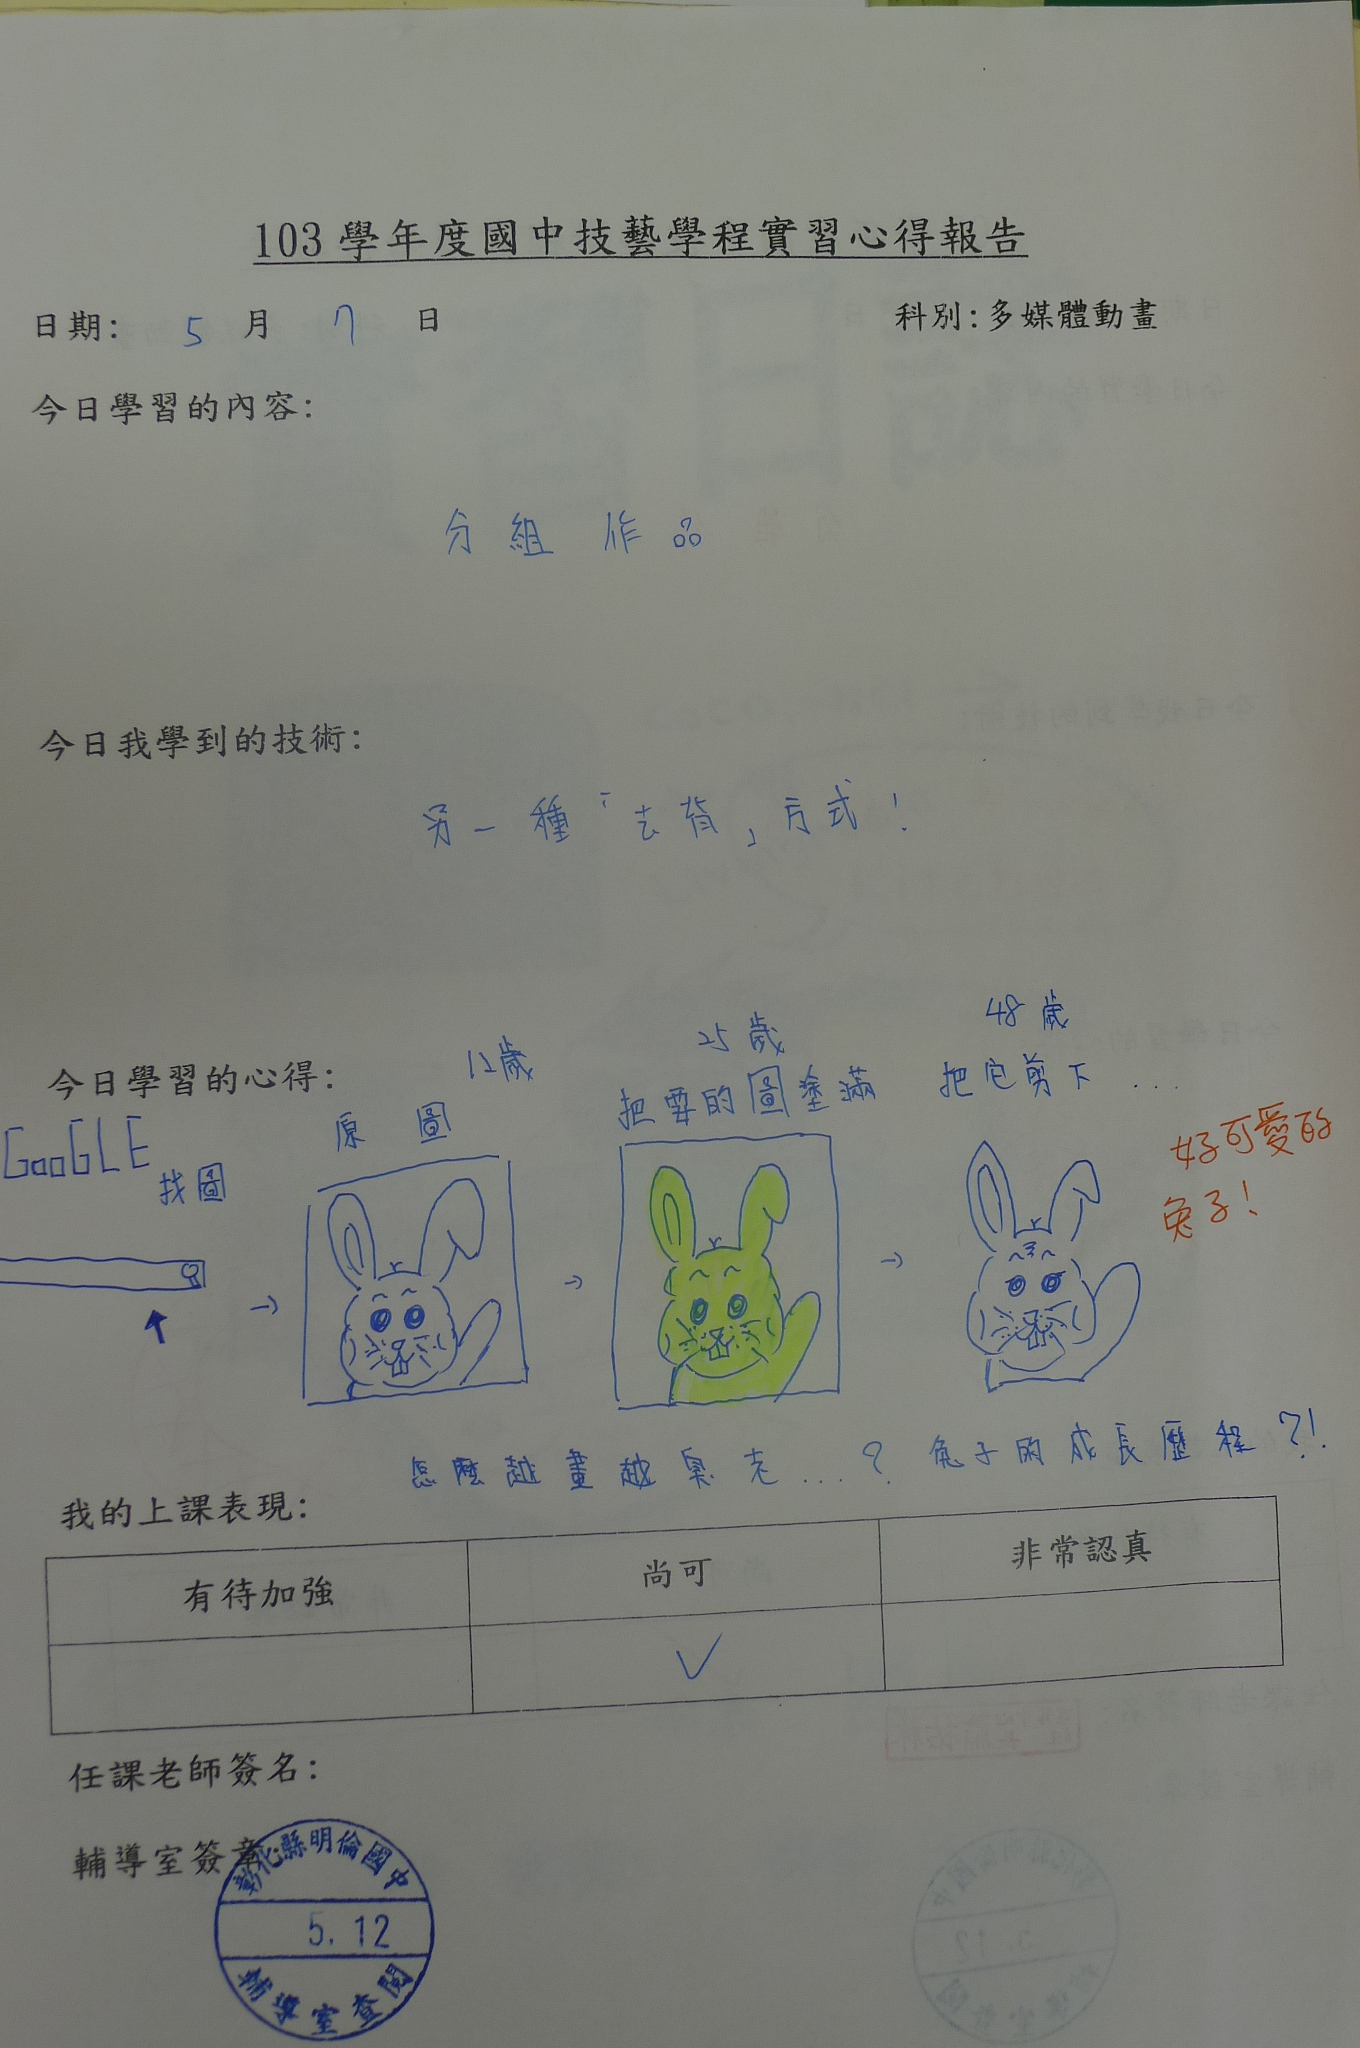 103學年度國中技藝學程實習心得報告
日期： 5 月 7 日
科別：多媒體動畫
今日學習的內容：
分組 作品
今日我學到的技術：
另一種「去背」方式！
今日學習的心得：
GooGLE
找圖
12歲
原圖
25歲
把要的圖塗滿
48歲
把它剪下...
好可愛的
兔子！
怎麼越畫越臭老...？ 兔子的成長歷程?!
我的上課表現：
有待加強 尚可 非常認真
任課老師簽名：
輔導室簽章
彰化縣明倫國中
5.12
輔導室查閱